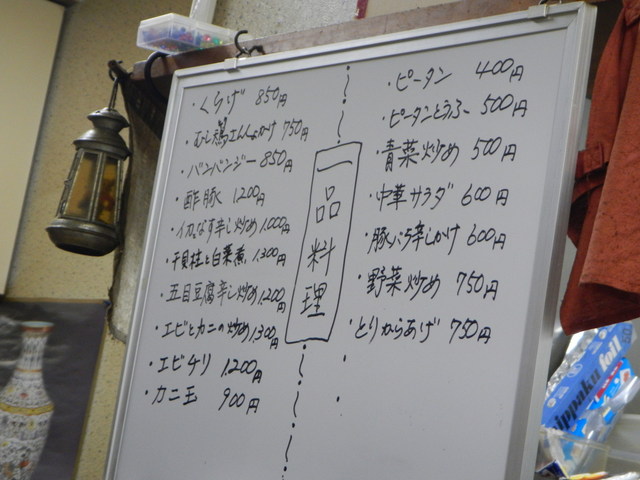 ・くらげ 850円
・むし鶏さんしょかけ 750円
・バンバンジー 850円
・酢豚 1,200円
・イカなす辛し炒め 1,000円
・干貝柱と白菜煮 1,300円
・五目豆腐辛し炒め 1,200円
・エビとカニの炒め 1,300円
・エビチリ 1,200円
・カニ玉 900円
一品料理
・ピータン 400円
・ピータンとうふー 500円
・青菜炒め 500円
・中華サラダ 600円
・豚バラ辛しかけ 600円
・野菜炒め 750円
・とりからあげ 750円
・
・
nippaku foil